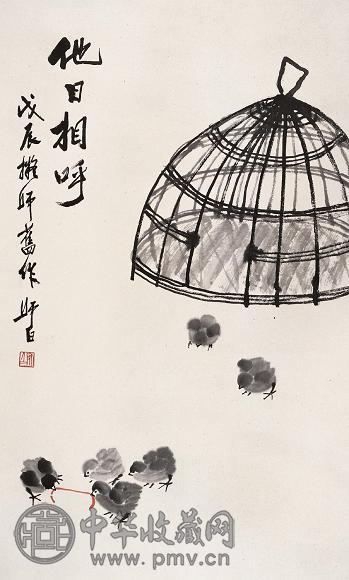 他日相呼
戊辰拟师旧作 师白
中华收藏网
www.pmv.cn